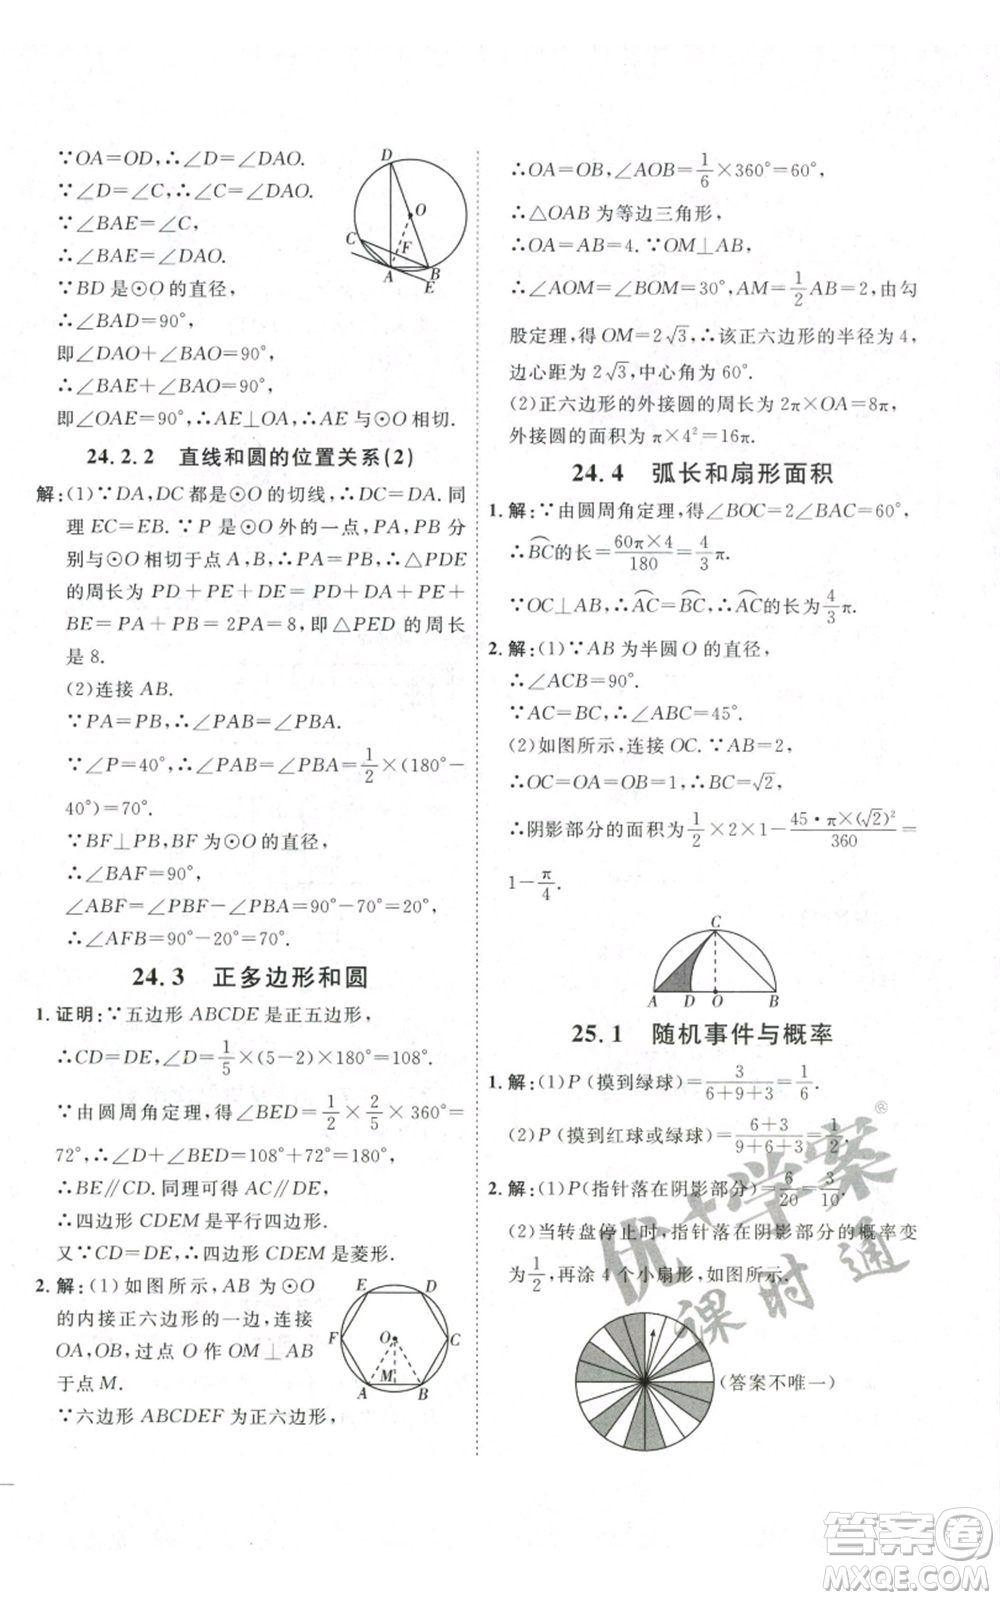 ∵OA=OD,∴∠D=∠DAO.
∵∠D=∠C,∴∠C=∠DAO.
∵∠BAE=∠C,
∴∠BAE=∠DAO.
∵BD 是⊙O 的直径,
∴∠BAD=90°,
即∠DAO+∠BAO=90°,
∴∠BAE+∠BAO=90°,
即∠OAE=90°,∴AE⊥OA,∴AE 与⊙O 相切.
D
O
C
F
A
B
E
24.2.2 直线和圆的位置关系(2)
解:(1)∵DA,DC 都是⊙O 的切线,∴DC=DA.同
理 EC=EB.∵P 是⊙O 外的一点,PA,PB 分
别与⊙O 相切于点 A,B,∴PA=PB,∴△PDE
的周长为 PD+PE+DE=PD+DA+PE+
BE=PA+PB=2PA=8,即△PED 的周长
是 8.
(2)连接 AB.
∵PA=PB,∴∠PAB=∠PBA.
∵∠P=40°,∴∠PAB=∠PBA=1/2×(180°-
40°)=70°.
∵BF⊥PB,BF 为⊙O 的直径,
∴∠BAF=90°,
∠ABF=∠PBF-∠PBA=90°-70°=20°,
∴∠AFB=90°-20°=70°.
24.3 正多边形和圆
1.证明:∵五边形 ABCDE 是正五边形,
∴CD=DE,∠D=1/5×(5-2)×180°=108°.
∵由圆周角定理,得∠BED=1/2×2/5×360°=
72°,∴∠BED+∠D=108°+72°=180°,
∴BE∥CD.同理可得 AC∥DE,
∴四边形 CDEM 是平行四边形.
又∵CD=DE,∴四边形 CDEM 是菱形.
2.解:(1)如图所示,AB 为⊙O
的内接正六边形的一边,连接
OA,OB,过点 O 作 OM⊥AB
于点 M.
∵六边形 ABCDEF 为正六边形,
E D
F O C
M
A B
∴OA=OB,∠AOB=1/6×360°=60°,
∴△OAB 为等边三角形,
∴OA=AB=4.∵OM⊥AB,
∴∠AOM=∠BOM=30°,AM=1/2AB=2,由勾
股定理,得 OM=2√3,∴该正六边形的半径为 4,
边心距为 2√3,中心角为 60°.
(2)正六边形的外接圆的周长为 2π×OA=8π,
外接圆的面积为 π×4²=16π.
24.4 弧长和扇形面积
1.解:∵由圆周角定理,得∠BOC=2∠BAC=60°,
∴⌒BC的长=60π×4/180=4/3π.
∵OC⊥AB,∴⌒AC=⌒BC,∴⌒AC的长为4/3π.
2.解:(1)∵AB 为半圆 O 的直径,
∴∠ACB=90°.
∵AC=BC,∴∠ABC=45°.
(2)如图所示,连接 OC.∵AB=2,
∴OC=OA=OB=1,∴BC=√2,
∴阴影部分的面积为1/2×2×1-45·π×(√2)²/360=
1-π/4.
C
A D O B
25.1 随机事件与概率
1.解:(1)P(摸到绿球)=3/(6+9+3)=1/6.
(2)P(摸到红球或绿球)=(6+3)/(6+9+3)=1/2.
2.解:(1)P(指针落在阴影部分)=6/20=3/10.
(2)当转盘停止时,指针落在阴影部分的概率变
为1/2,再涂 4 个小扇形,如图所示.
(答案不唯一)
优+学案®
课时通
答案圈
MXQE.COM